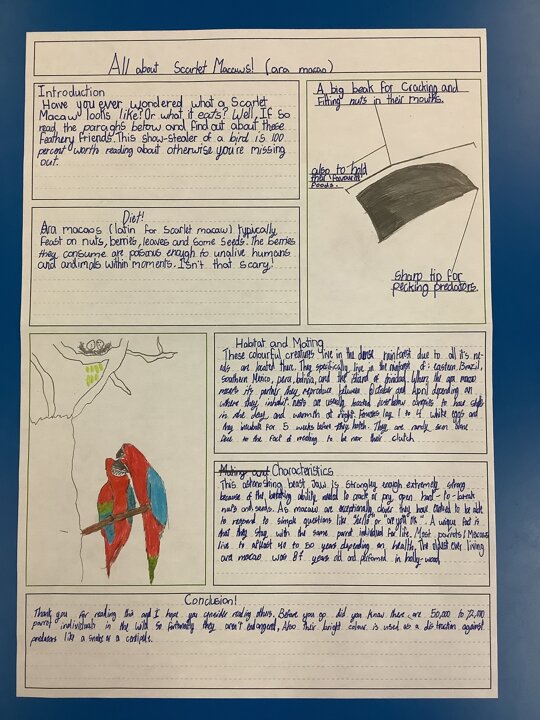 All about Scarlet Macaws! (ara macao)
Introduction
Have you ever wondered what a Scarlet
Macaw looks like? Or what it eats? Well, If so
read the paraghs below and find out about these
feathery friends. This show-stealer of a bird is 100
percent worth reading about otherwise you're missing
out.
A big beak for Cracking and
Fitting nuts in their mouths.
also to hold
their favourite
foods.
sharp tip for
pecking predators.
Diet!
Ara macaos (latin for Scarlet macaw) typically
Feast on nuts, berries, leaves and some seeds. The berries
they consume are poisonus enough to unalive humans
and andimals within moments. Isn't that scary!
Habitat and Mating
These colourful creatures live in the dense rainforest due to all it's ne-
eds are located there. They specifically live in the rainforest of: eastern Brazil,
Southern Mexico, peru, bolivia, and the island of trinidad. Where the ara macao
meets its partner they reproduce between October and April depending on
where they inhabit. nests are usually located
in the day and warmth at night. Females lay 1 to 4 white eggs and
they incubate for 5 weeks before they hatch. They are rarely seen alone
due to the fact of needing to be near their clutch.
Mating and Characteristics
This astonishing beast Jaw is strongley enough extremely strong
because of the ability needed to crack or pry open hard-to-break
nuts and seeds. As macaw are exceptionally clever they have evolved to be able
to respond to simple questions like "hello" or "are you ok". A unique fact is
that they stay with the same parrot individual for life. Most parrots/Macaws
live to atleast 40 to 50 years depending on health, The oldest ever living
ara macao was 87 years old and performed in hollywood.
Conclusion!
Thank you for reading this and I hope you consider reading others. Before you go did you know there are 50,000 to 72,000
parrot individuals in the wild so fortunately they aren't endangered, Also their bright colour is used as a distraction against
predators like a snake or a centipede.